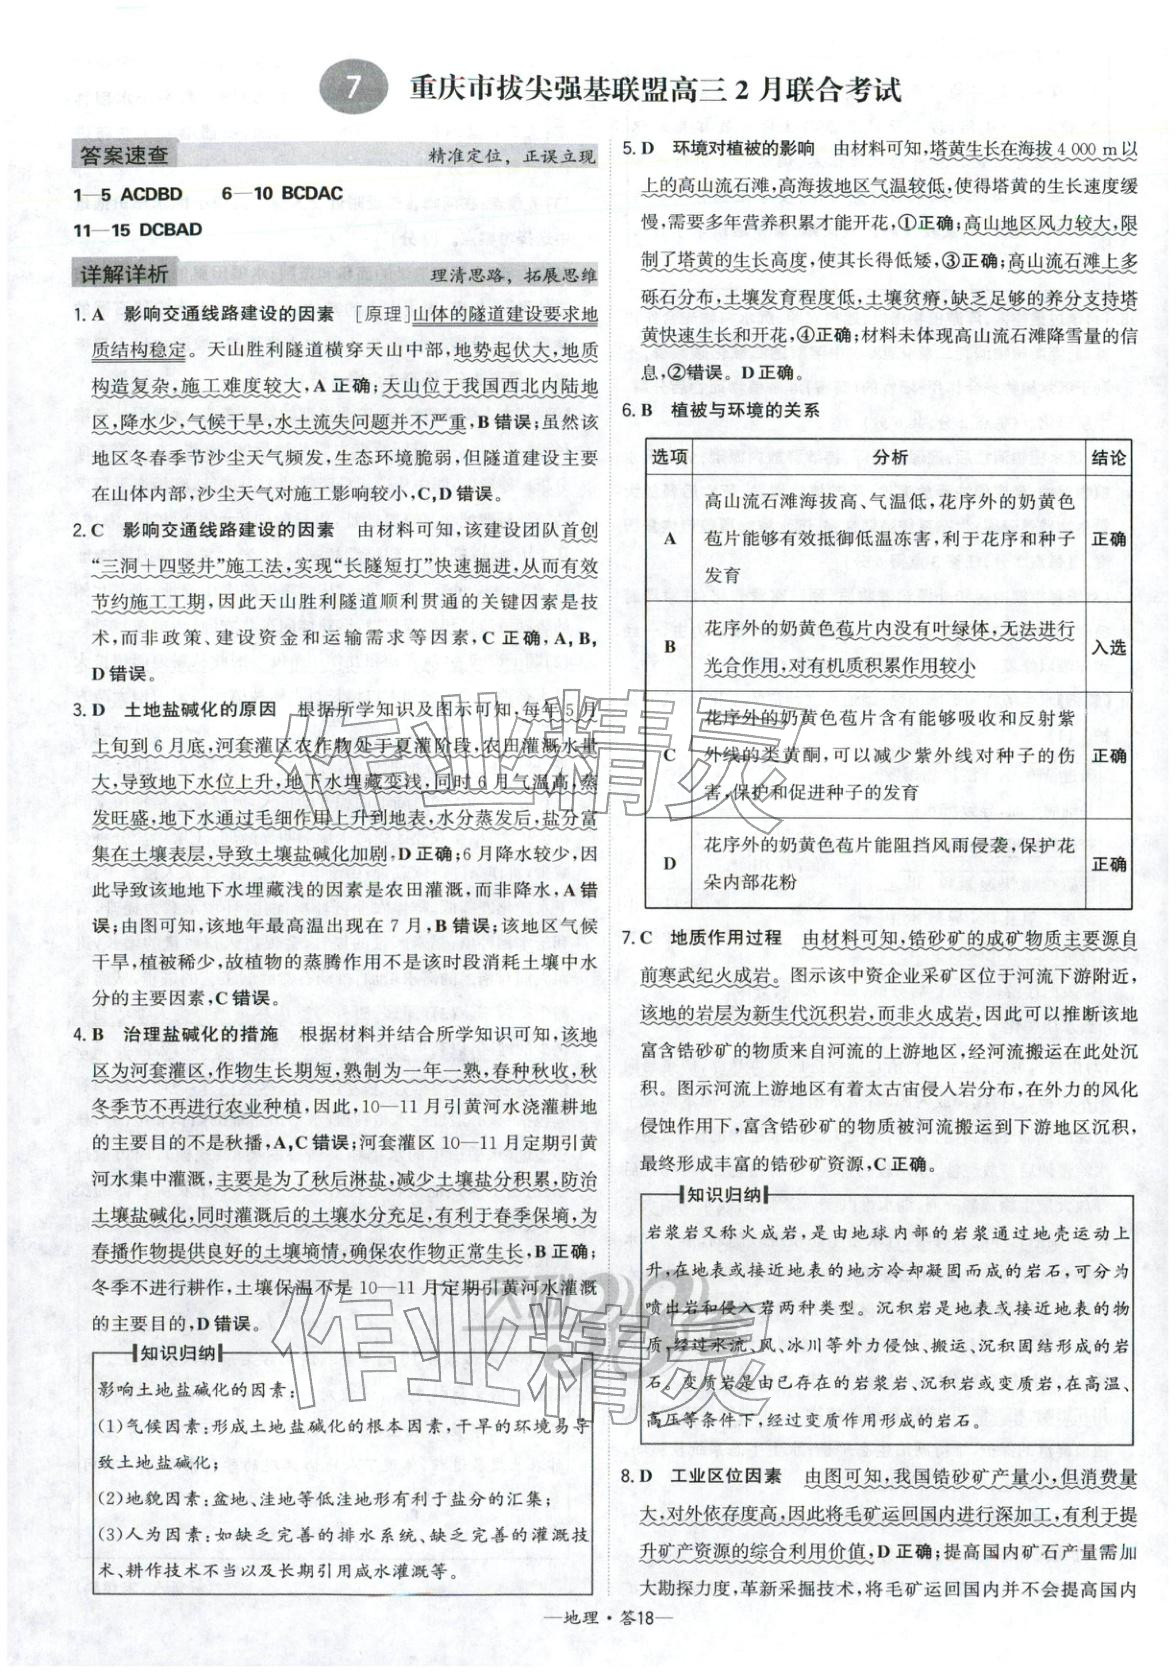 7 重庆市拔尖强基联盟高三2月联合考试
答案速查 精准定位，正误立现
1—5 ACDBD 6—10 BCDAC
11—15 DCBAD
详解详析 理清思路，拓展思维
1. A 影响交通线路建设的因素 [原理]山体的隧道建设要求地
质结构稳定。天山胜利隧道横穿天山中部,地势起伏大,地质
构造复杂,施工难度较大,A正确;天山位于我国西北内陆地
区,降水少,气候干旱,水土流失问题并不严重,B错误;虽然该
地区冬春季节沙尘天气频发,生态环境脆弱,但隧道建设主要
在山体内部,沙尘天气对施工影响较小,C,D错误。
2. C 影响交通线路建设的因素 由材料可知,该建设团队首创
“三洞＋四竖井”施工法,实现“长隧短打”快速掘进,从而有效
节约施工工期,因此天山胜利隧道顺利贯通的关键因素是技
术,而非政策、建设资金和运输需求等因素,C正确,A,B,
D错误。
3. D 土地盐碱化的原因 根据所学知识及图示可知,每年5月
上旬到6月底,河套灌区农作物处于夏灌阶段,农田灌溉水量
大,导致地下水位上升,地下水埋藏变浅,同时6月气温高,蒸
发旺盛,地下水通过毛细作用上升到地表,水分蒸发后,盐分富
集在土壤表层,导致土壤盐碱化加剧,D正确;6月降水较少,因
此导致该地地下水埋藏浅的因素是农田灌溉,而非降水,A错
误;由图可知,该地年最高温出现在7月,B错误;该地区气候
干旱,植被稀少,故植物的蒸腾作用不是该时段消耗土壤中水
分的主要因素,C错误。
4. B 治理盐碱化的措施 根据材料并结合所学知识可知,该地
区为河套灌区,作物生长期短,熟制为一年一熟,春种秋收,秋
冬季节不再进行农业种植,因此,10—11月引黄河水浇灌耕地
的主要目的不是秋播,A,C错误;河套灌区10—11月定期引黄
河水集中灌溉,主要是为了秋后淋盐,减少土壤盐分积累,防治
土壤盐碱化,同时灌溉后的土壤水分充足,有利于春季保墒,为
春播作物提供良好的土壤墒情,确保农作物正常生长,B正确;
冬季不进行耕作,土壤保温不是10—11月定期引黄河水灌溉
的主要目的,D错误。
知识归纳
影响土地盐碱化的因素:
(1)气候因素:形成土地盐碱化的根本因素,干旱的环境易导
致土地盐碱化;
(2)地貌因素:盆地、洼地等低洼地形有利于盐分的汇集;
(3)人为因素:如缺乏完善的排水系统、缺乏完善的灌溉技
术、耕作技术不当以及长期引用咸水灌溉等。
5. D 环境对植被的影响 由材料可知,塔黄生长在海拔4 000 m以
上的高山流石滩,高海拔地区气温较低,使得塔黄的生长速度缓
慢,需要多年营养积累才能开花,①正确;高山地区风力较大,限
制了塔黄的生长高度,使其长得低矮,③正确;高山流石滩上多
砾石分布,土壤发育程度低,土壤贫瘠,缺乏足够的养分支持塔
黄快速生长和开花,④正确;材料未体现高山流石滩降雪量的信
息,②错误。D正确。
6. B 植被与环境的关系
选项 分析 结论
A 高山流石滩海拔高、气温低,花序外的奶黄色
苞片能够有效抵御低温冻害,利于花序和种子
发育 正确
B 花序外的奶黄色苞片内没有叶绿体,无法进行
光合作用,对有机质积累作用较小 入选
C 花序外的奶黄色苞片含有能够吸收和反射紫
外线的类黄酮,可以减少紫外线对种子的伤
害,保护和促进种子的发育 正确
D 花序外的奶黄色苞片能阻挡风雨侵袭,保护花
朵内部花粉 正确
7. C 地质作用过程 由材料可知,锆砂矿的成矿物质主要源自
前寒武纪火成岩。图示该中资企业采矿区位于河流下游附近,
该地的岩层为新生代沉积岩,而非火成岩,因此可以推断该地
富含锆砂矿的物质来自河流的上游地区,经河流搬运在此处沉
积。图示河流上游地区有着太古宙侵入岩分布,在外力的风化
侵蚀作用下,富含锆砂矿的物质被河流搬运到下游地区沉积,
最终形成丰富的锆砂矿资源,C正确。
知识归纳
岩浆岩又称火成岩,是由地球内部的岩浆通过地壳运动上
升,在地表或接近地表的地方冷却凝固而成的岩石,可分为
喷出岩和侵入岩两种类型。沉积岩是地表或接近地表的物
质,经过水流、风、冰川等外力侵蚀、搬运、沉积固结形成的岩
石。变质岩是由已存在的岩浆岩、沉积岩或变质岩,在高温、
高压等条件下,经过变质作用形成的岩石。
8. D 工业区位因素 由图可知,我国锆砂矿产量小,但消费量
大,对外依存度高,因此将毛矿运回国内进行深加工,有利于提
升矿产资源的综合利用价值,D正确;提高国内矿石产量需加
大勘探力度,革新采掘技术,将毛矿运回国内并不会提高国内
—地理·答18—
作业精灵
作业精灵